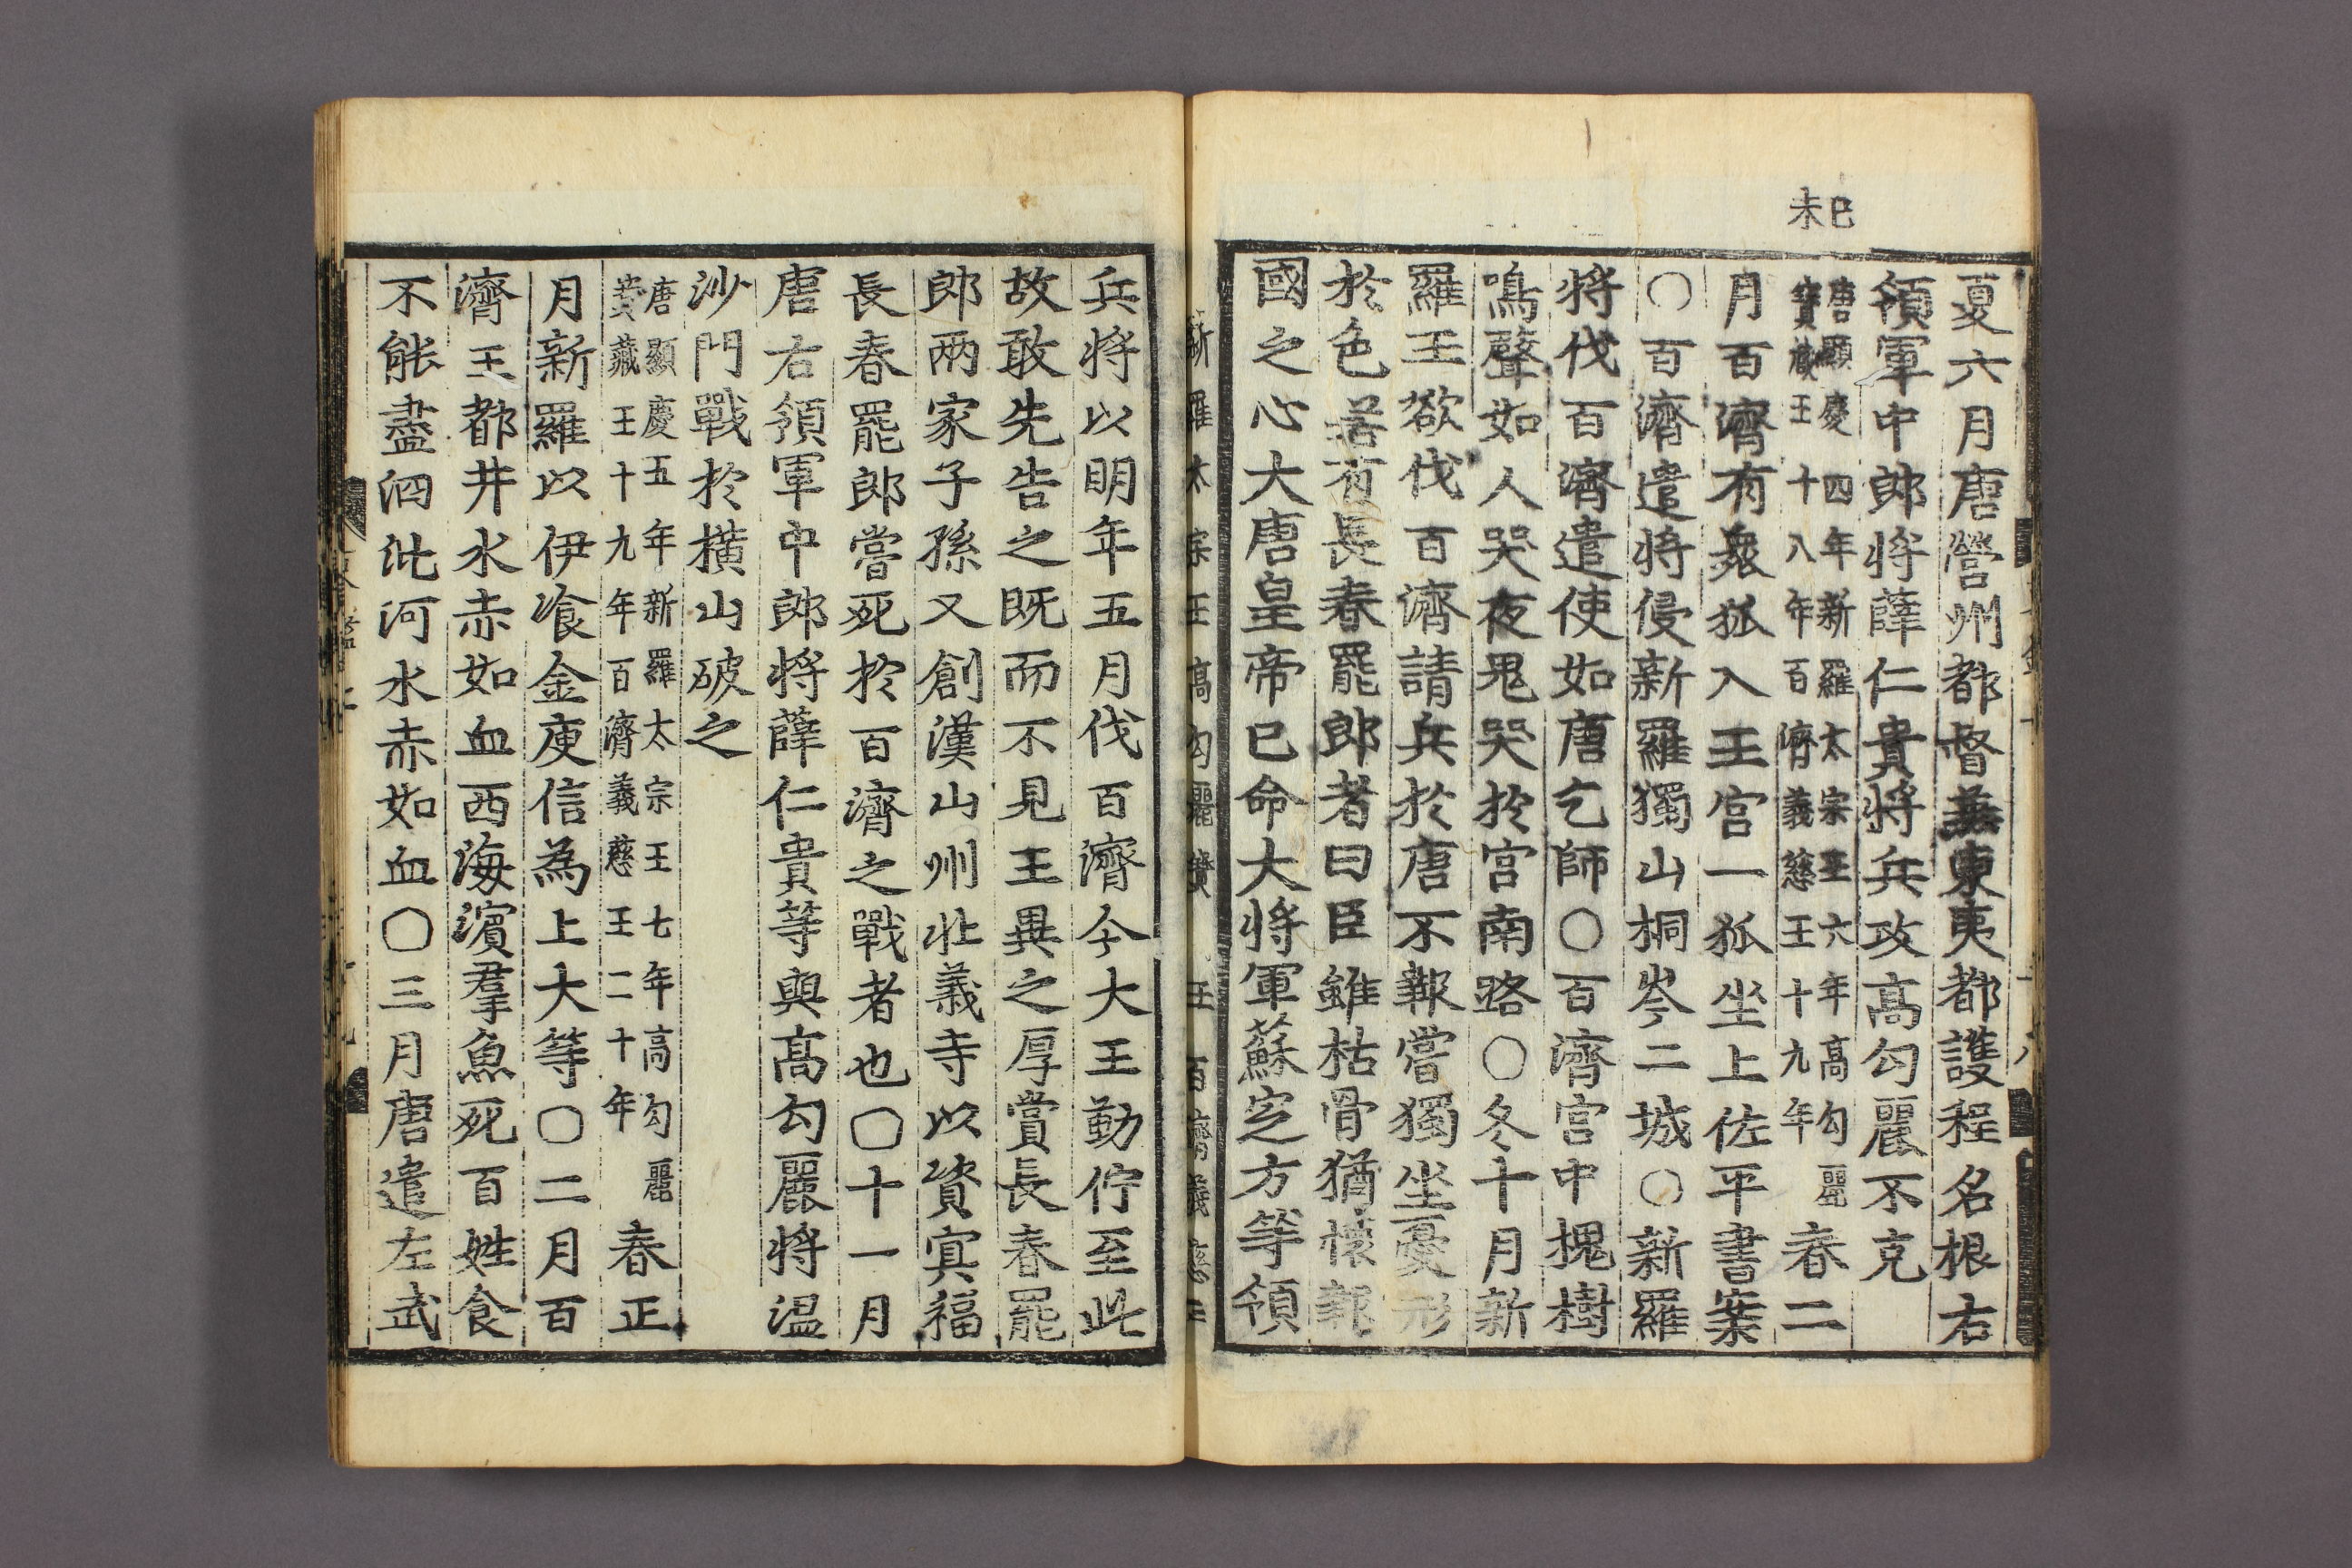 己未
夏六月唐營州都督兼東夷都護程名振右
領軍中郎將薛仁貴將兵攻高勾麗不克
唐顯慶四年新羅太宗王六年高勾麗
寶藏王十八年百濟義慈王十九年
春二
月百濟有衆狐入王宮一狐坐上佐平書案
○百濟遣將侵新羅獨山桐岑二城○新羅
將伐百濟遣使如唐乞師○百濟宮中槐樹
鳴聲如人哭夜鬼哭於宮南路○冬十月新
羅王欲伐百濟請兵於唐不報嘗獨坐憂形
於色若有長春罷郎者曰臣雖枯骨猶懷報
國之心大唐皇帝已命大將軍蘇定方等領
新羅太宗王 高勾麗寶藏王 百濟義慈王
兵將以明年五月伐百濟今大王勤佇至此
故敢先告之既而不見王異之厚賞長春罷
郎兩家子孫又創漢山州壯義寺以資冥福
長春罷郎嘗死於百濟之戰者也○十一月
唐右領軍中郎將薛仁貴等與高勾麗將温
沙門戰於橫山破之
唐顯慶五年新羅太宗王七年高勾麗
寶藏王十九年百濟義慈王二十年
春正
月新羅以伊飡金庾信為上大等○二月百
濟王都井水赤如血西海濱羣魚死百姓食
不能盡泗沘河水赤如血○三月唐遣左武